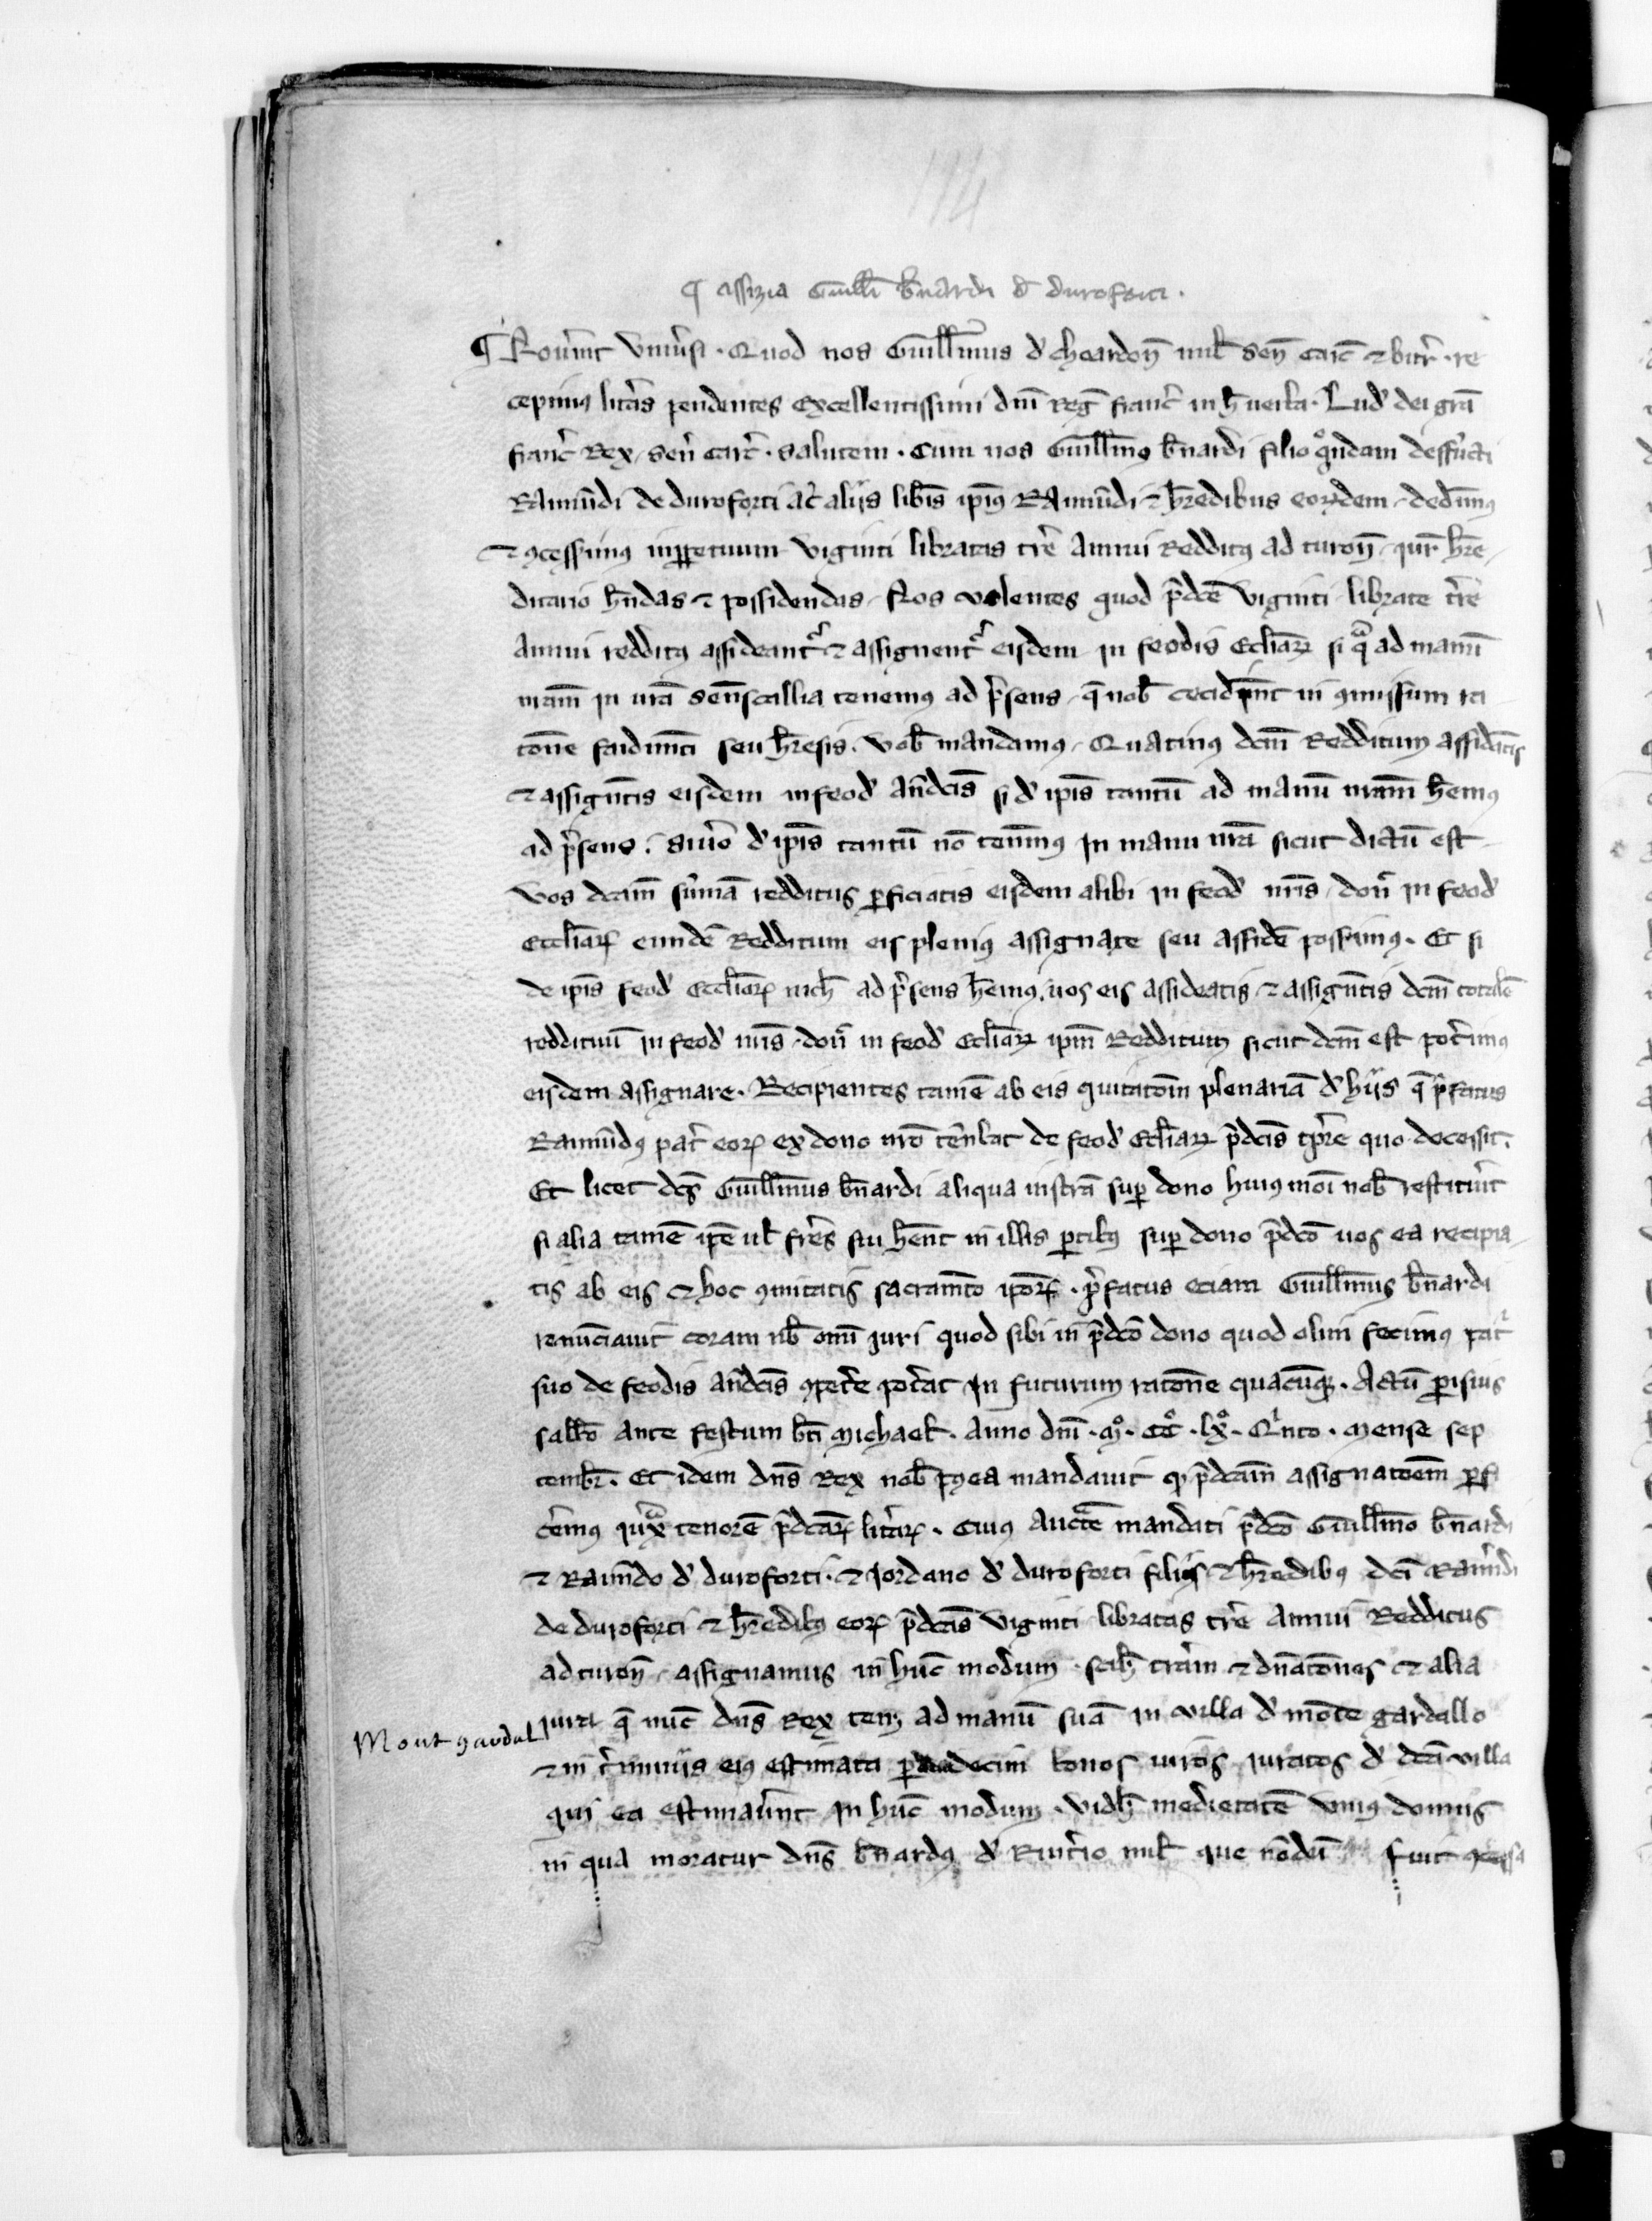 114
¶ assizia Guillī b̄nardi d̄ duroforti.
¶ Nov̄int Univ̄si. Quod nos Guillmus d̄ cheardoñ mil̄ señ carc̄ ⁊ bitr̄. re
cepimꝯ litt̄as pendentes excellentissimi dn̄i Reḡ franc̄ in h̄ verba. Lud̄ dei gr̄a
franc̄ Rex, señ carc̄. salutem. Cum nos Guillmꝯ b̄nardi filio qͦndam deffūcti
Ramūdi de duroforti ac̄ aliis lib̄is ip̄iꝯ Ramūdi ⁊ h̄redibus eorꝫdem, dedimꝯ
⁊ ꝯcessimꝯ inꝑpetuum viginti libratas t̄re annui Redditꝯ ad turoñ, iur̄ h̄re
ditario h̄ndas ⁊ possidendas. Nos volentes quod p̄dc̄e viginti librate t̄re
annui redditꝯ assideant̄ ⁊ assignent̄ eisdem in feodis Eccl̄iarꝫ si qᵃ ad manū
nr̄am in vr̄a Sen̄scallia tenemꝯ ad p̄sens, q̄ nob̄ cecid̄unt in ꝯmissum ra
tōne faidimti seu h̄resis. vob̄ mandamꝯ, Quatinꝯ dc̄m Redditum assid̄atis
⁊ assignetis eisdem in feod̄ an̄dc̄is si d̄ ip̄is tantū ad manū nr̄am h̄emꝯ
ad p̄sens. Si v̄o d̄ ip̄is tantū nō tenemꝯ in manu nr̄a sicut dictū est
vos dc̄am sūmā redditus ꝑficiatis eisdem alibi in feod̄ nr̄is, don̄ in feod̄
Eccl̄iarꝫ eundē Redditum eis pleniꝯ assignare seu assid̄e possimꝯ. Et si
de ip̄is feod̄ Eccl̄iarꝫ nich̄ ad p̄sens h̄emꝯ, vos eis assideatis ⁊ assignetis dc̄m totalē
redditum in feod̄ nr̄is, don̄ in feod̄ Eccl̄iarꝫ ip̄m Redditum sicut dc̄m est pot̄imꝯ
eisdem assignare. Recipientes tamē ab eis quitatōm plenariā d̄ hiis q̄ p̄fatus
Ramūdꝯ pat̄ eorꝫ ex dono nr̄o ten̄bat de feod̄ Eccl̄iarꝫ p̄dc̄is tp̄re quo decessit.
Et licet dc̄s Guillmus b̄nardi aliqua instr̄a suꝑ dono huiꝯmōi nob̄ restituit̄
si alia tamē ip̄e vl̄ fr̄es sui h̄ent in illis ꝑtibꝯ suꝑ dono p̄dc̄o vos ea recipia
tis ab eis ⁊ hoc ꝯmitatis sacramēto ip̄orꝫ. p̄fatus eciam Guillmus b̄nardi
renūciauit coram nob̄ omī iuri quod sibi in p̄dc̄o dono quod olim fecimꝯ pat̄
suo de feodis an̄dc̄is ꝯpet̄e pot̄at in futurum ratōne quacūqꝫ. Actū ꝑisius
sabb̄o ante festum b̄ti Michael̄. Anno dn̄i. Mͦ. CCͦ. lxͦ. Qⁱnto. mense sep
tembr̄. Et idem dn̄s Rex nob̄ postea mandavit qͦ p̄dc̄am assignatōem ꝑfi
c̄emꝯ iuxᵃ tenorē p̄dc̄arꝫ litt̄arꝫ. Cuiꝯ auctᵉ mandati p̄dc̄o Guillmo b̄nardi
⁊ Ramūdo d̄ duroforti. ⁊ Jordano d̄ duroforti filiis ⁊ h̄redibꝯ dc̄i Ramūdi
de duroforti ⁊ h̄redibꝯ eorꝫ p̄dc̄as viginti libratas t̄re annui Redditus
ad turoñ, assignamus in hūc modum. scil̄ t̄ram ⁊ dn̄atōnes ⁊ alia
Montgardal
iura q̄ nūc dn̄s Rex tenꝫ ad manū suā in villa d̄ mōte gardallo
⁊ in t̄miniis eiꝯ estimata ꝑ decim bonos viros iuratos d̄ dc̄a villa
qui ea estimav̄unt in hūc modum. vidl̄ medietatē uniꝯ domus
in qua moratur dn̄s b̄nardꝯ d̄ Riut̄io mil̄ que nōdū fuit ꝯcessa